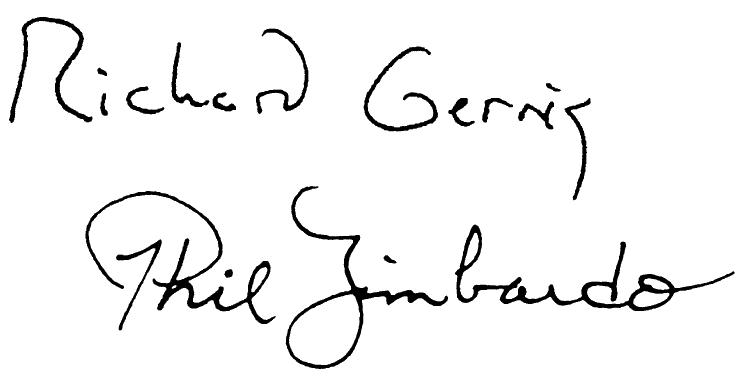 Richard Gerrig
Phil Zimbardo